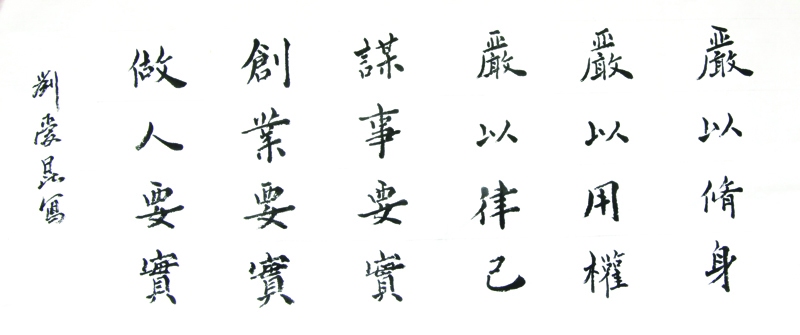 嚴以脩身
嚴以用權
嚴以律己
謀事要實
創業要實
做人要實
劉愛昆寫